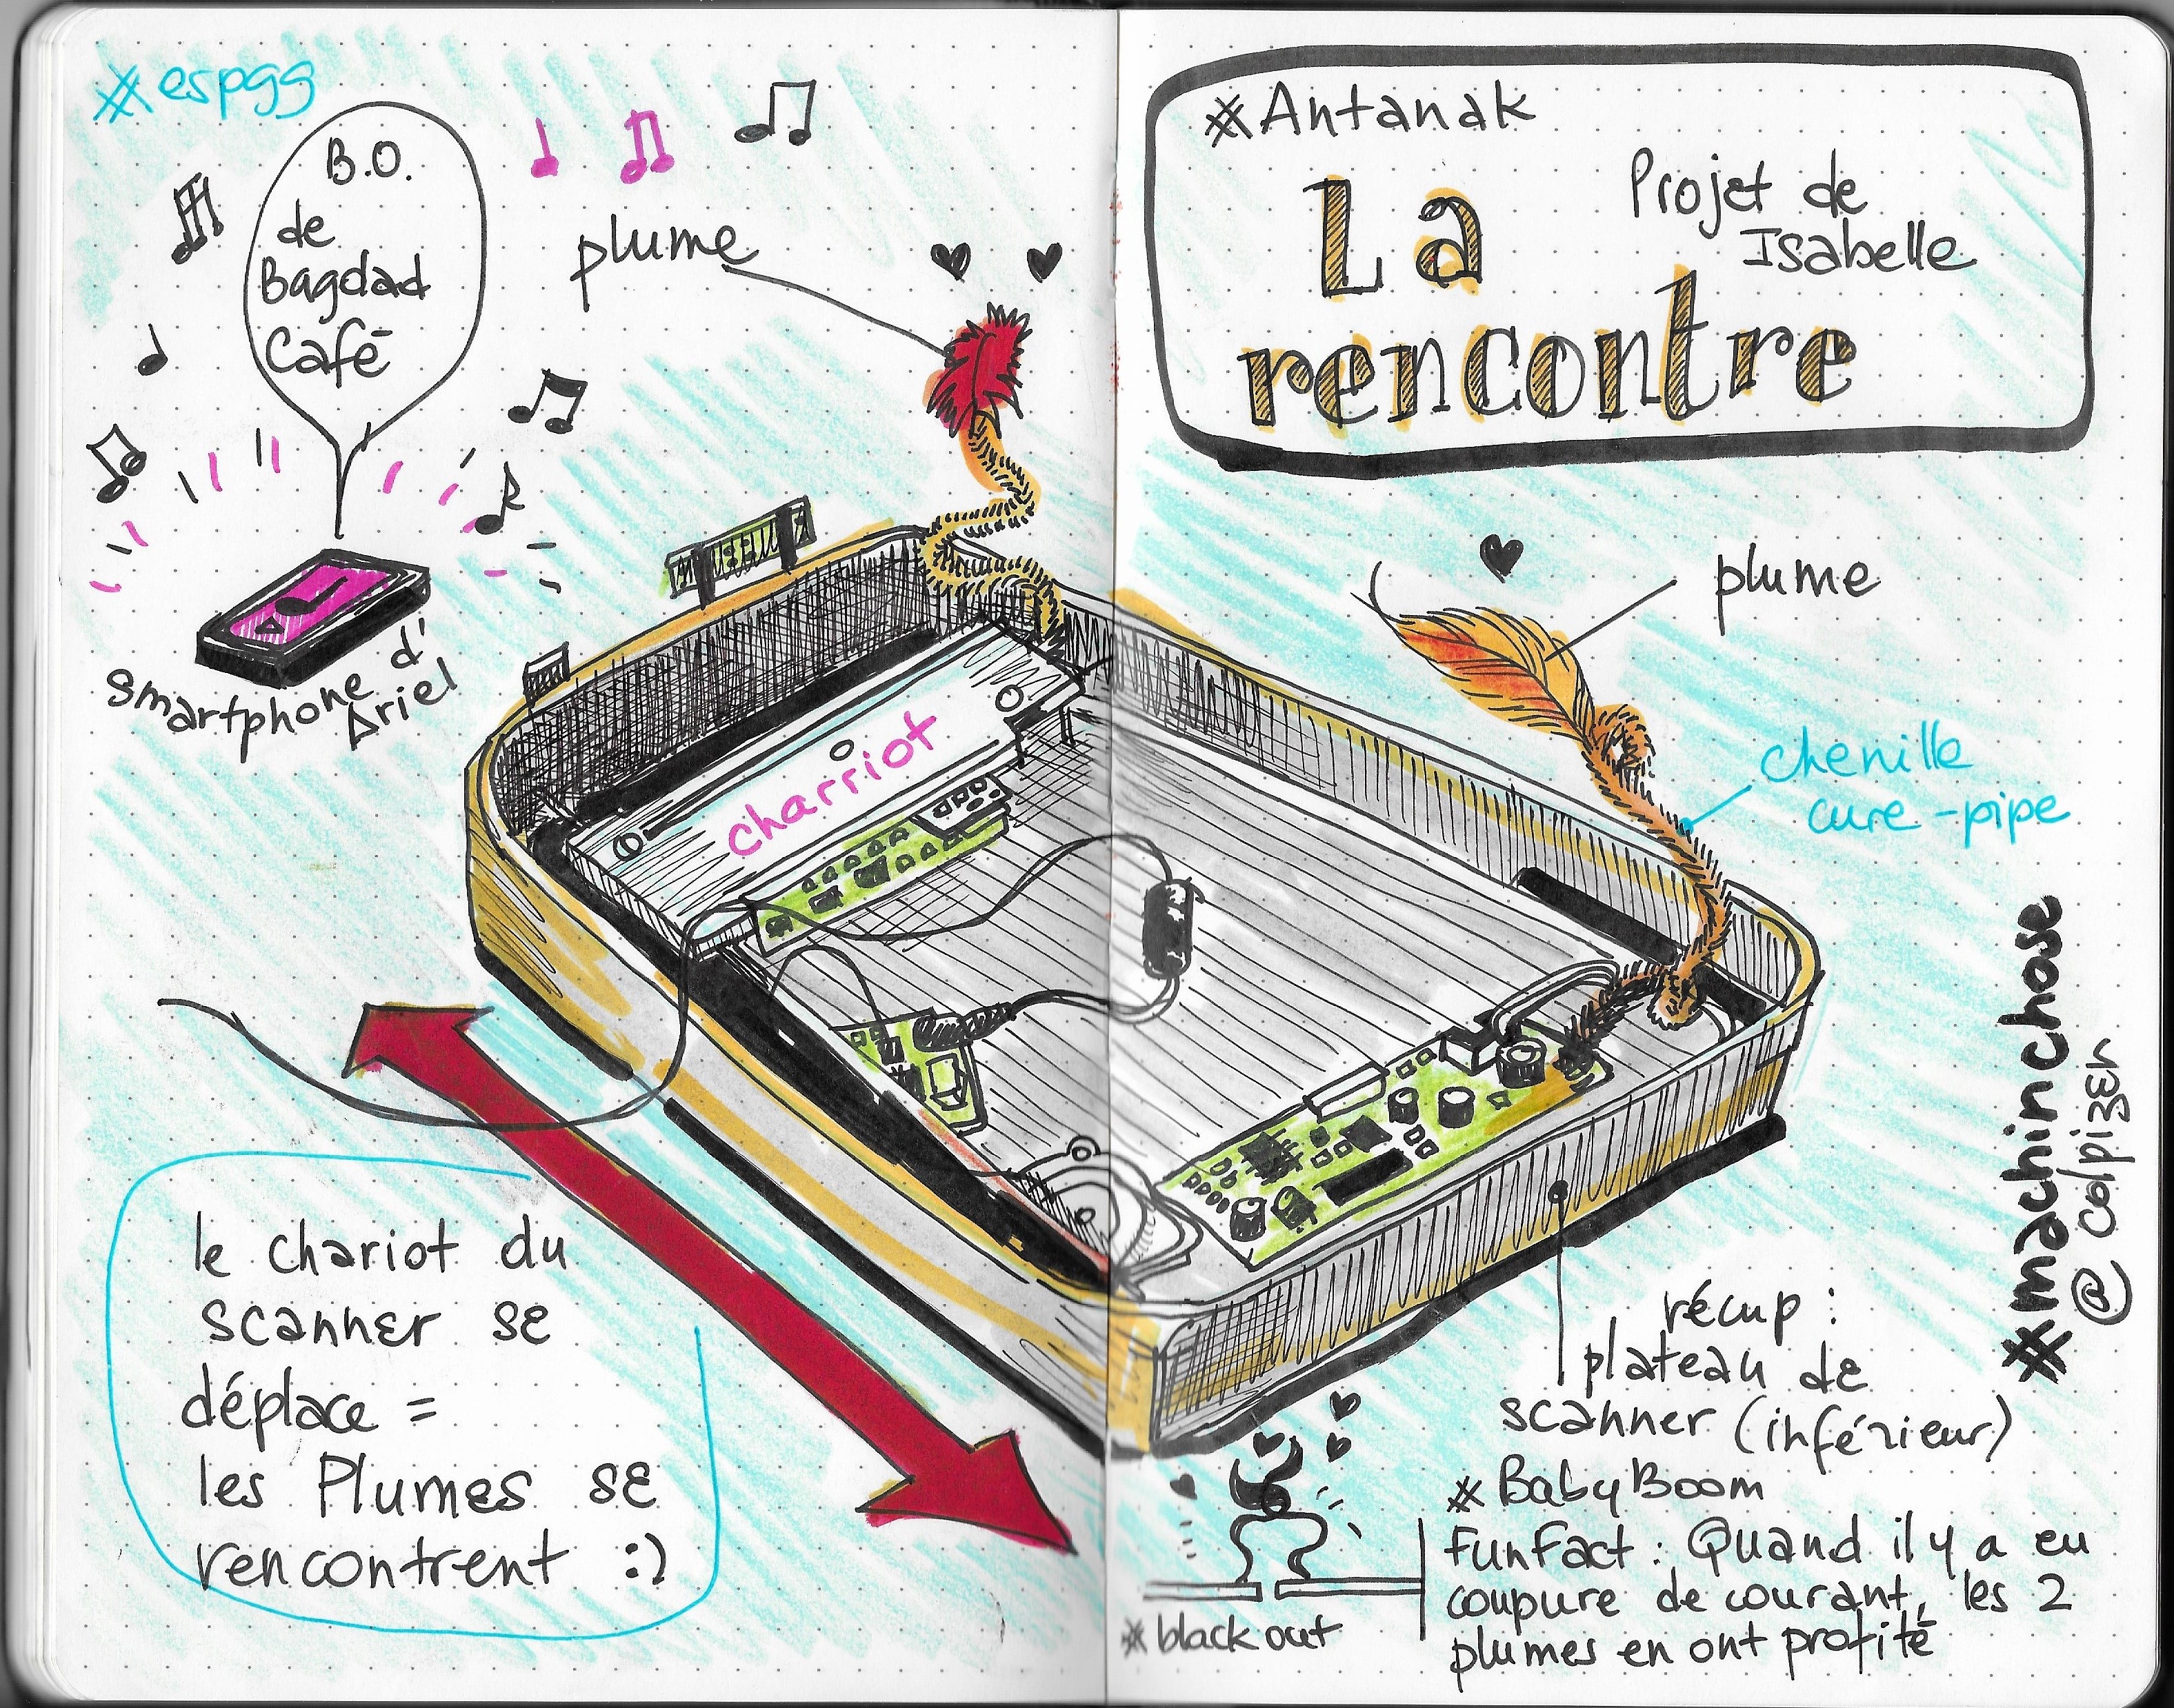 #espgg
B.O.
de
Bagdad
Café
plume
smartphone d'
Ariel
charriot
le chariot du
scanner se
déplace =
les Plumes se
rencontrent :)
#Antanak
La
rencontre
Projet de
Isabelle
plume
chenille
cure-pipe
#machinchose
@calpizen
récup :
plateau de
scanner (inférieur)
#BabyBoom
FunFact : Quand il y a eu
coupure de courant, les 2
plumes en ont profité
#black out